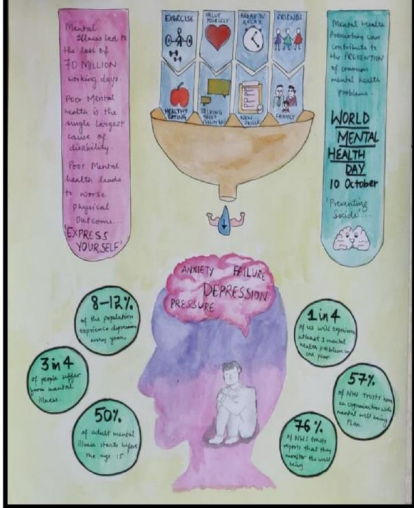 Mental
Illness led to
the loss of
70 MILLION
working days.
Poor Mental
health is the
single largest
cause of
disability.
Poor Mental
health leads
to worse
physical
outcome.
'EXPRESS
YOURSELF'
EXERCISE
VALUE
YOURSELF
BREAK
FRIENDS
HEALTHY
EATING
TALKING
ABOUT
NEW
SKILLS
FAMILY
Mental Health
Promotion can
contribute to
the PREVENTION
of common
mental health
problems.
WORLD
MENTAL
HEALTH
DAY
10 October
'Preventing
Suicide'
ANXIETY FAILURE
DEPRESSION
PRESSURE
8-12%
of the population
experience depression
every year.
3 in 4
of people suffer
from mental
illness.
50%
of adult mental
illness starts before
the age 15
1 in 4
of us will experience
atleast 1 mental
health problem in
one year
57%
of NHS TRUSTS have
an organisation wide
mental well being
Plan.
76%
of NHS trusts
reports that they
monitor the well
being